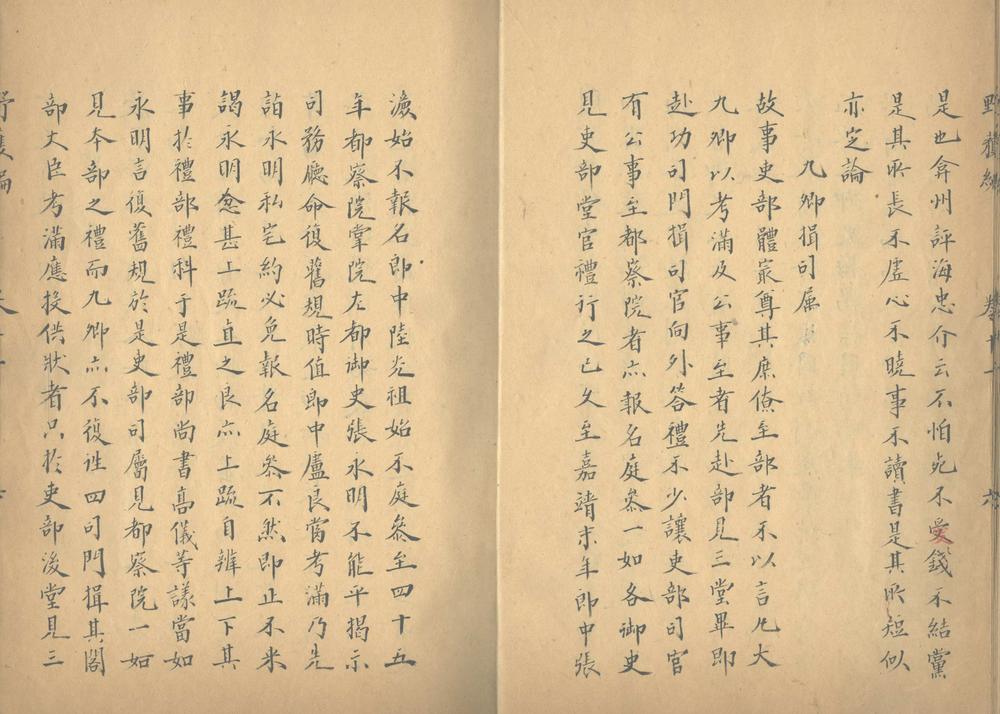 野獲編
是也弇州評海忠介云不怕死不愛錢不結黨
是其所長不虛心不曉事不讀書是其所短似
亦定論
九卿揖司属
故事吏部體㝡尊其庶僚至部者不以言凡大
九卿以考滿及公事至者先赴部見三堂畢即
赴功司門揖司官向外答禮不少讓吏部司官
有公事至都察院者亦報名庭叅一如各御史
見吏部堂官禮行之已久至嘉靖末年郎中張
濂始不報名郎中陸光祖始不庭叅至四十五
年都察院掌院左都御史張永明不能平揭示
司務廳命復舊規時值郎中盧良當考滿乃先
詣永明私宅約必免報名庭叅不然即止不来
謁永明忿甚上疏直之良亦上疏自辨上下其
事扵禮部禮科于是禮部尚書高儀等議當如
永明言復舊規於是吏部司屬見都察院一如
見本部之禮而九卿亦不復詣四司門揖其閣
部大臣考滿應投供狀者只扵吏部後堂見三
野獲編